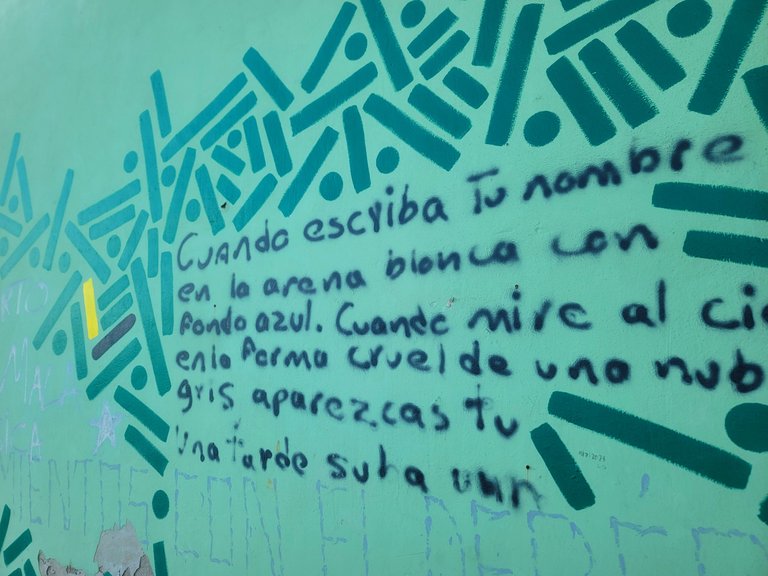 Cuando escriba Tu nombre
en la arena blanca con
fondo azul. Cuando mire al cie
en la forma cruel de una nub
gris aparezcas tu
Una tarde suba una
RTO
MALA
ICA
MIENTOS CON EL